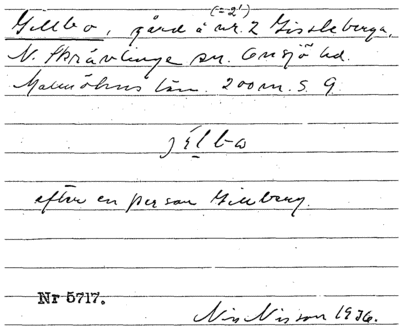 (=2¹)
Gillbo, gård å nr. 2 Gissleberga,
N. Skrävlinge sn. Onsjö hd.
Malmöhus län. 200 m. S. G.
jílbω
efter en person Gillberg.
Nr 5717.
Nils Nilsson 1936.